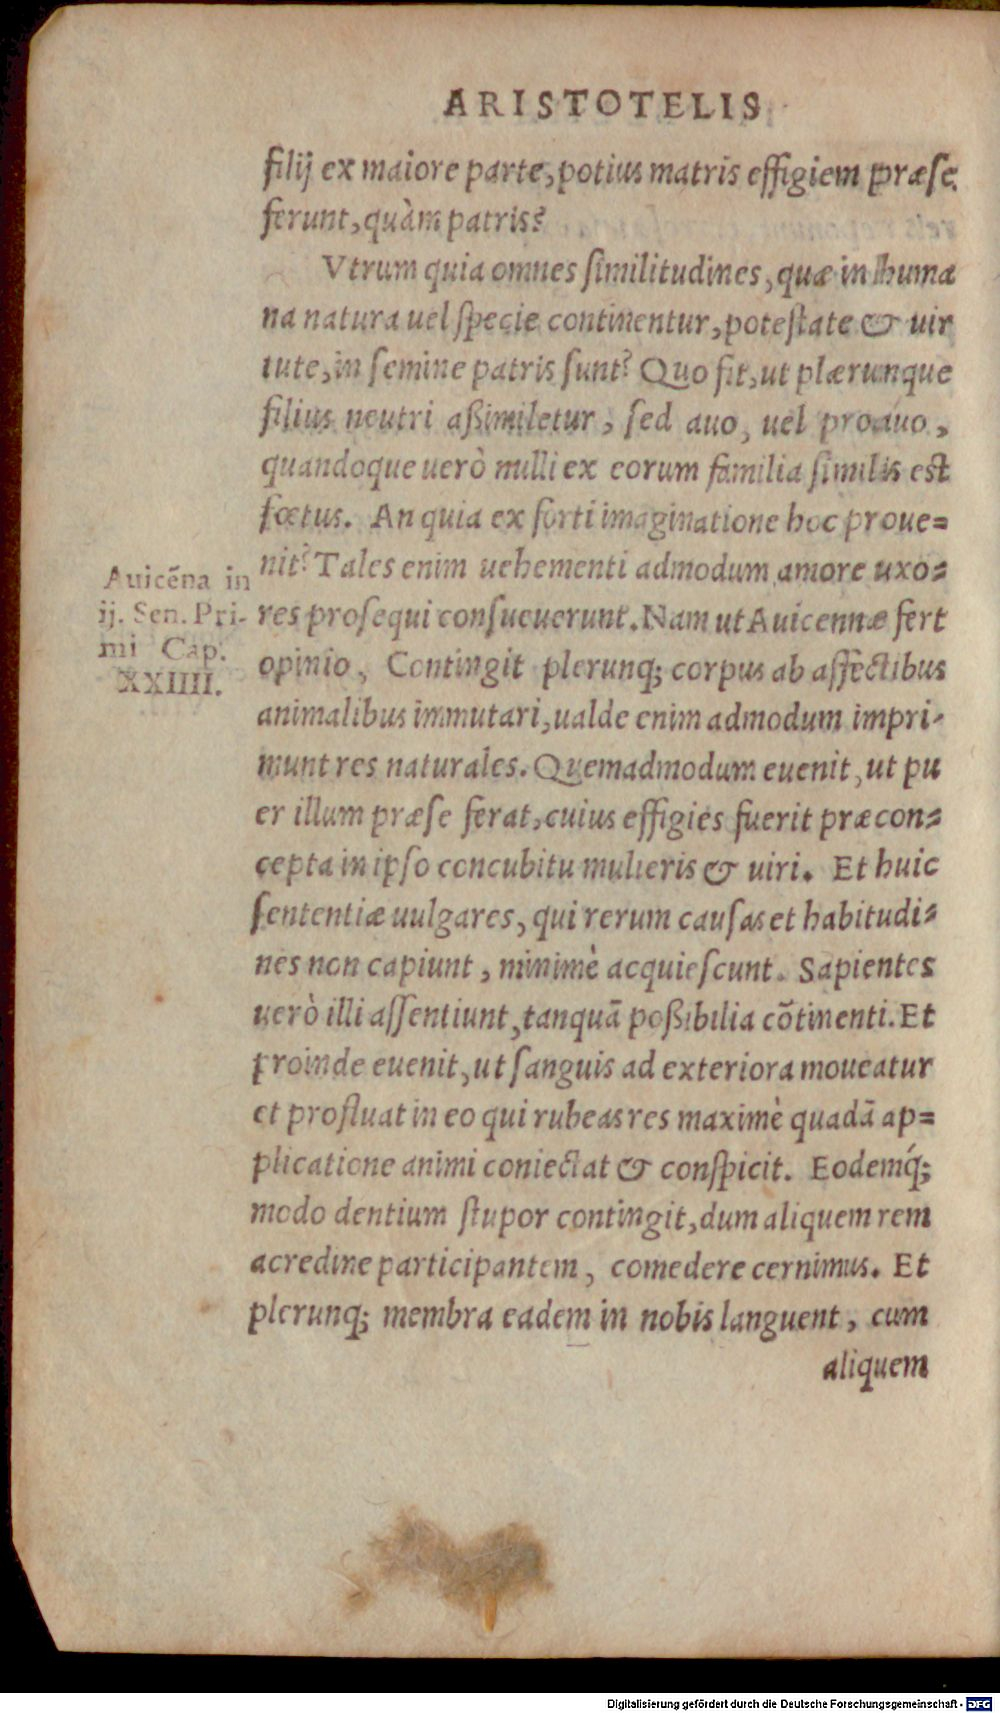 ARISTOTELIS
filij ex maiore parte, potius matris effigiem præse
ferunt, quàm patris?
Vtrum quia omnes similitudines, quæ in huma
na natura uel specie continentur, potestate & uir
tute, in semine patris sunt? Quo fit, ut plærunque
filius neutri aßimiletur, sed auo, uel proauo,
quandoque uerò nulli ex eorum familia similis est
fœtus. An quia ex forti imaginatione hoc proue=
nit? Tales enim uehementi admodum amore uxo=
res prosequi consueuerunt. Nam ut Auicennæ fert
opinio, Contingit plerunq; corpus ab affectibus
animalibus immutari, ualde enim admodum impri-
munt res naturales. Quemadmodum euenit, ut pu
er illum præse ferat, cuius effigies fuerit præcon=
cepta in ipso concubitu mulieris & uiri. Et huic
sententiæ uulgares, qui rerum causas et habitudi=
nes non capiunt, minimè acquiescunt. Sapientes
uerò illi assentiunt, tanquã poßibilia cõtinenti. Et
proinde euenit, ut sanguis ad exteriora moueatur
et profluat in eo qui rubeas res maximè quadã ap=
plicatione animi coniectat & conspicit. Eodemq́;
modo dentium stupor contingit, dum aliquem rem
acredine participantem, comedere cernimus. Et
plerunq; membra eadem in nobis languent, cum
aliquem
Auicẽna in
ij. Sen. Pri-
mi Cap.
XXIIII.
Digitalisierung gefördert durch die Deutsche Forschungsgemeinschaft - DFG